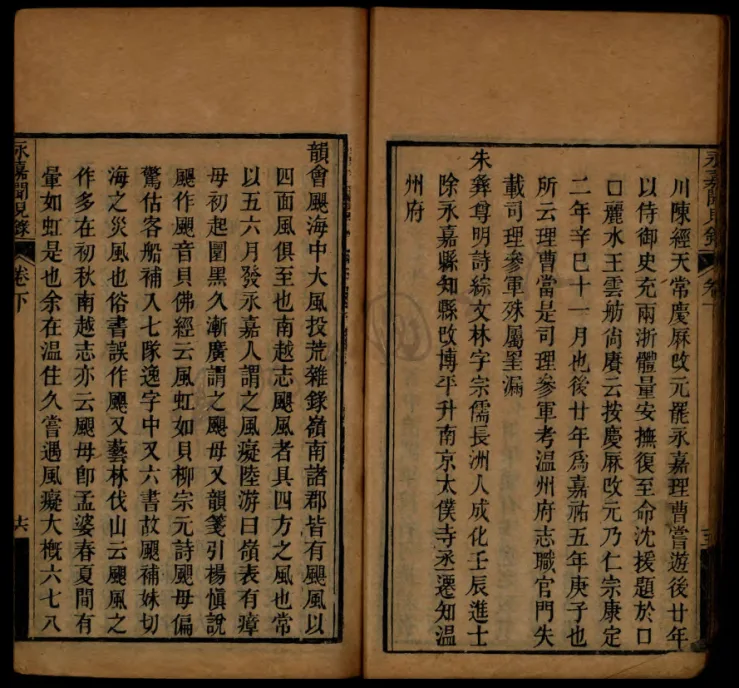 川陳經天常慶厤改元罷永嘉理曹嘗遊後廿年
以侍御史充兩浙體量安撫復至命沈援題於口
口麗水王雲舫尙賡云按慶厤改元乃仁宗康定
二年辛巳十一月也後廿年爲嘉祐五年庚子也
所云理曹當是司理參軍考温州府志職官門失
載司理參軍殊屬罣漏
朱彝尊明詩綜文林字宗儒長洲人成化壬辰進士
除永嘉縣知縣改博平升南京太僕寺丞遷知温
州府
永嘉聞見錄
卷
韻會颶海中大風投荒雜錄嶺南諸郡皆有颶風以
四面風俱至也南越志颶風者具四方之風也常
以五六月發永嘉人謂之風癡陸游曰嶺表有瘴
母初起圓黑久漸廣謂之颶母又韻箋引楊愼說
颶作颶音貝佛經云風虹如貝柳宗元詩颶母偏
驚估客船補入七隊逸字中又六書故颶補妹切
海之災風也俗書誤作颶又藝林伐山云颶風之
作多在初秋南越志亦云颶母卽孟婆春夏間有
暈如虹是也余在温住久嘗遇風癡大概六七八
永嘉聞見錄
卷下
六